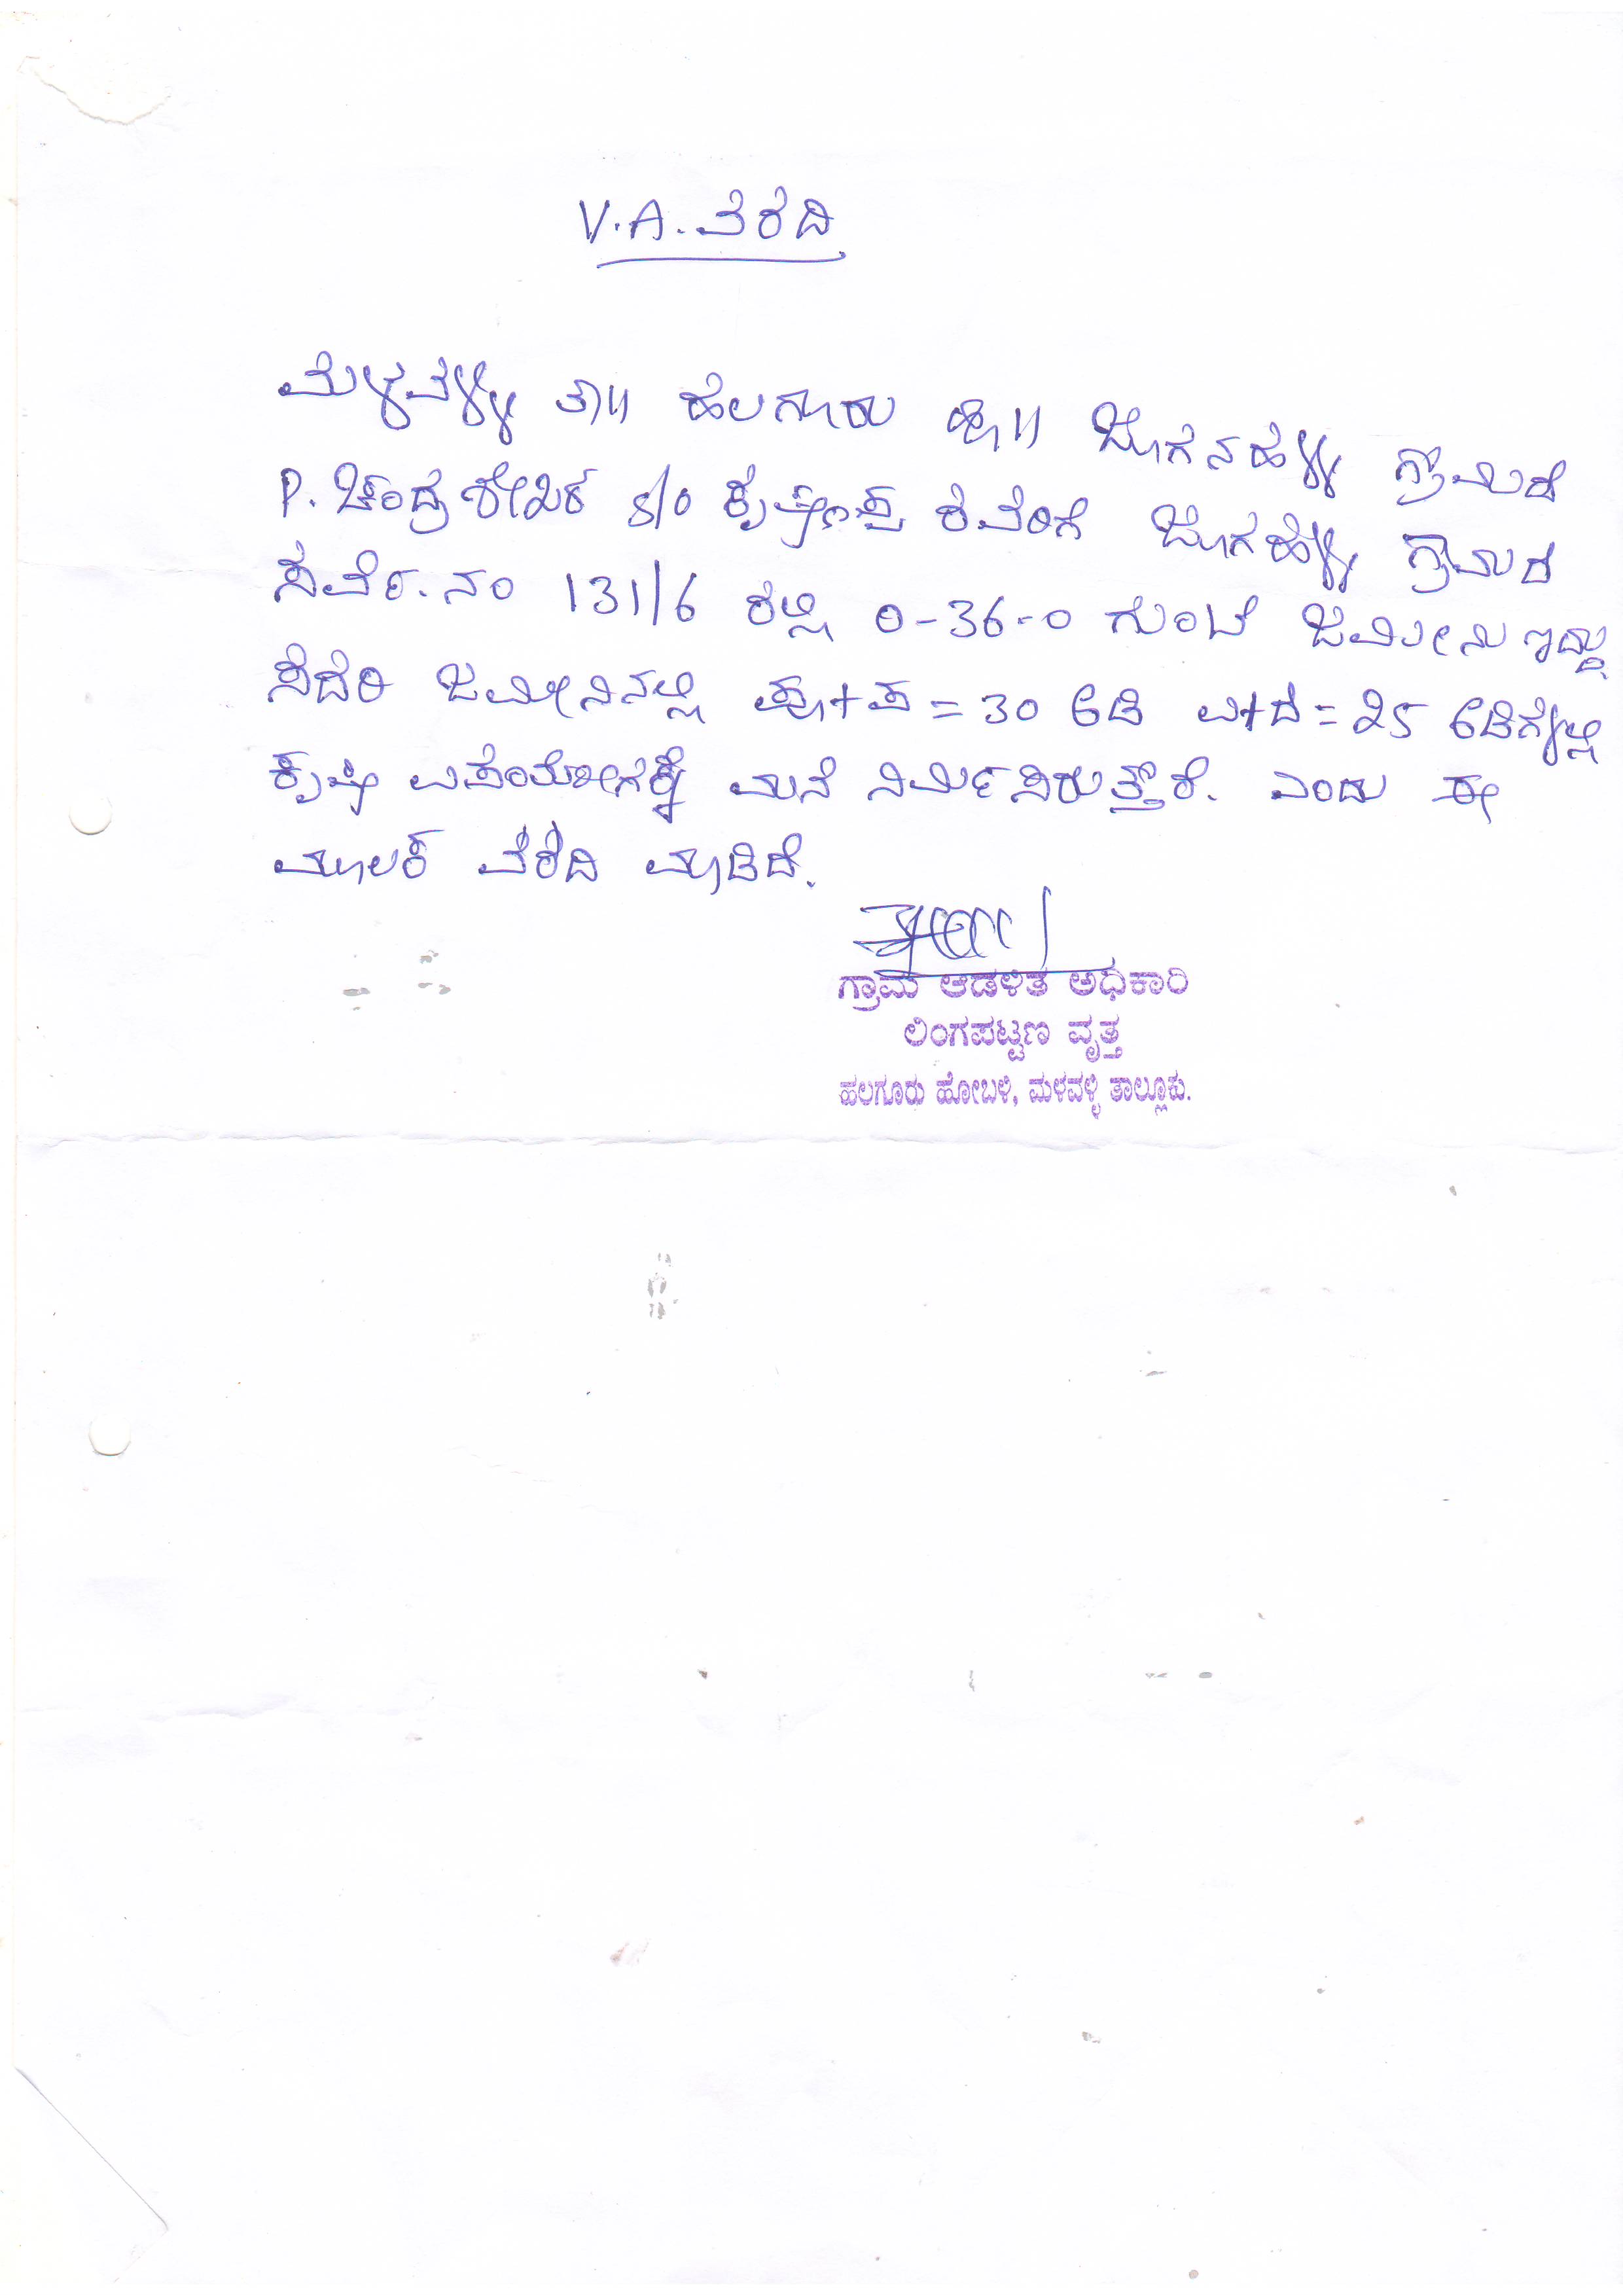 V.A. ವರದಿ
ಮಳವಳ್ಳಿ ತಾ॥ ಹಲಗೂರು ಹೋ॥ ಬ್ಯಾಗನಹಳ್ಳಿ ಗ್ರಾಮದ
P. ಚಂದ್ರಶೇಖರ s/o ಕೃಷ್ಣಪ್ಪ ರವರಿಗೆ ಗ್ರಾಮದ
ಸರ್ವೆ.ನಂ 131/6 ರಲ್ಲಿ 0-36-0 ಗುಂಟೆ ಜಮೀನು ಇದ್ದು
ಸದರಿ ಜಮೀನಿನಲ್ಲಿ ಪೂ+ಪ = 30 ಅಡಿ ಉ+ದ = 25 ಅಡಿಗಳಲ್ಲಿ
ಕೃಷಿ ಉಪಯೋಗಕ್ಕೆ ಮನೆ ನಿರ್ಮಿಸಿರುತ್ತಾರೆ. ಎಂದು ಈ
ಮೂಲಕ ವರದಿ ಮಾಡಿದೆ.
ಗ್ರಾಮ ಆಡಳಿತ ಅಧಿಕಾರಿ
ಲಿಂಗಪಟ್ಟಣ ವೃತ್ತ
ಹಲಗೂರು ಹೋಬಳಿ, ಮಳವಳ್ಳಿ ತಾಲ್ಲೂಕು.